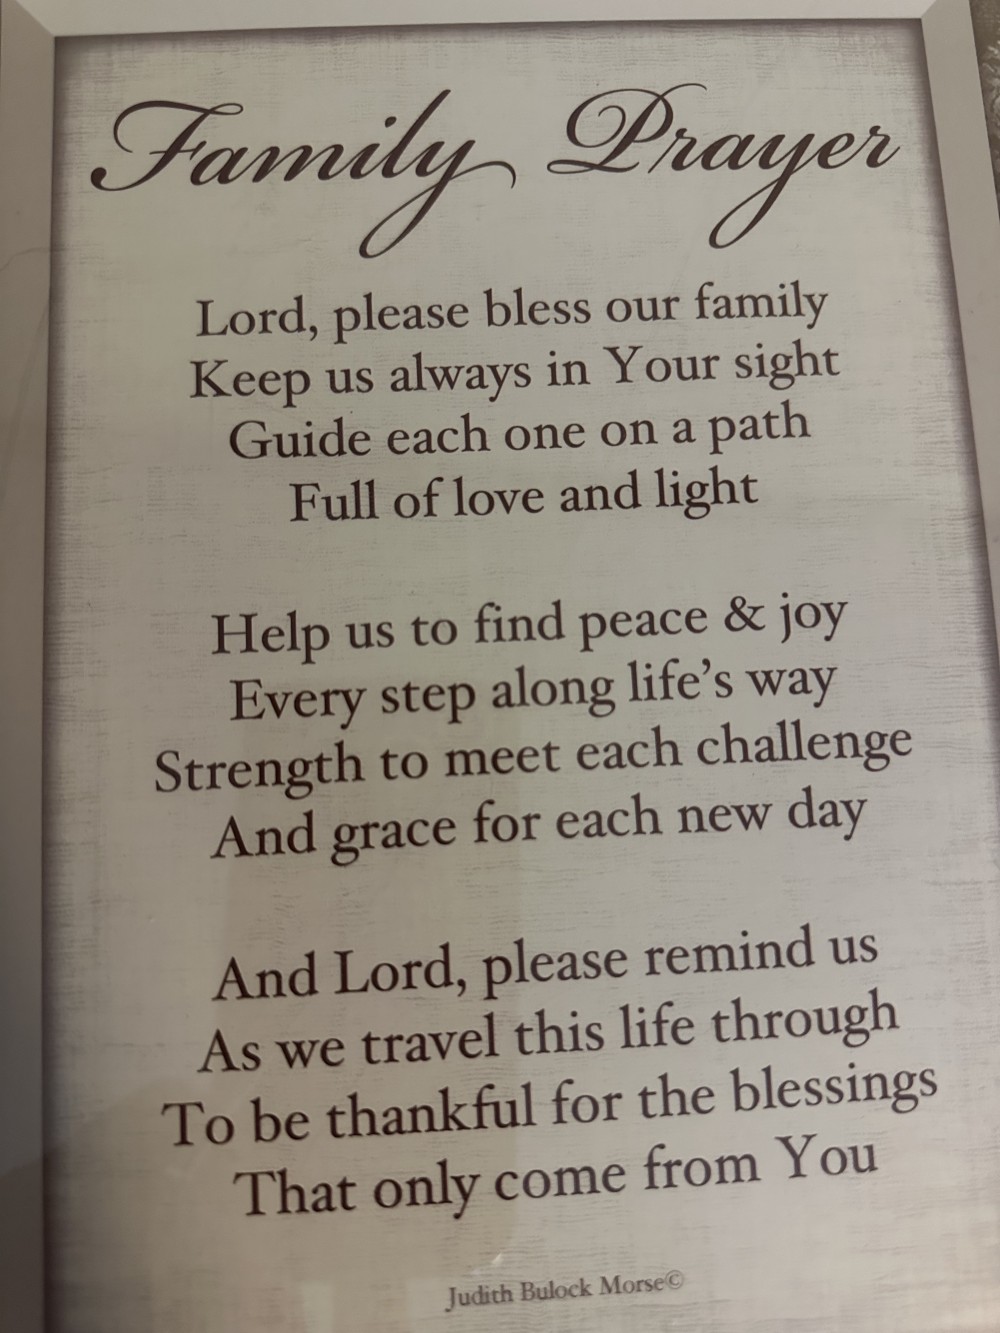 Family Prayer
Lord, please bless our family
Keep us always in Your sight
Guide each one on a path
Full of love and light
Help us to find peace & joy
Every step along life's way
Strength to meet each challenge
And grace for each new day
And Lord, please remind us
As we travel this life through
To be thankful for the blessings
That only come from You
Judith Bulock Morse©